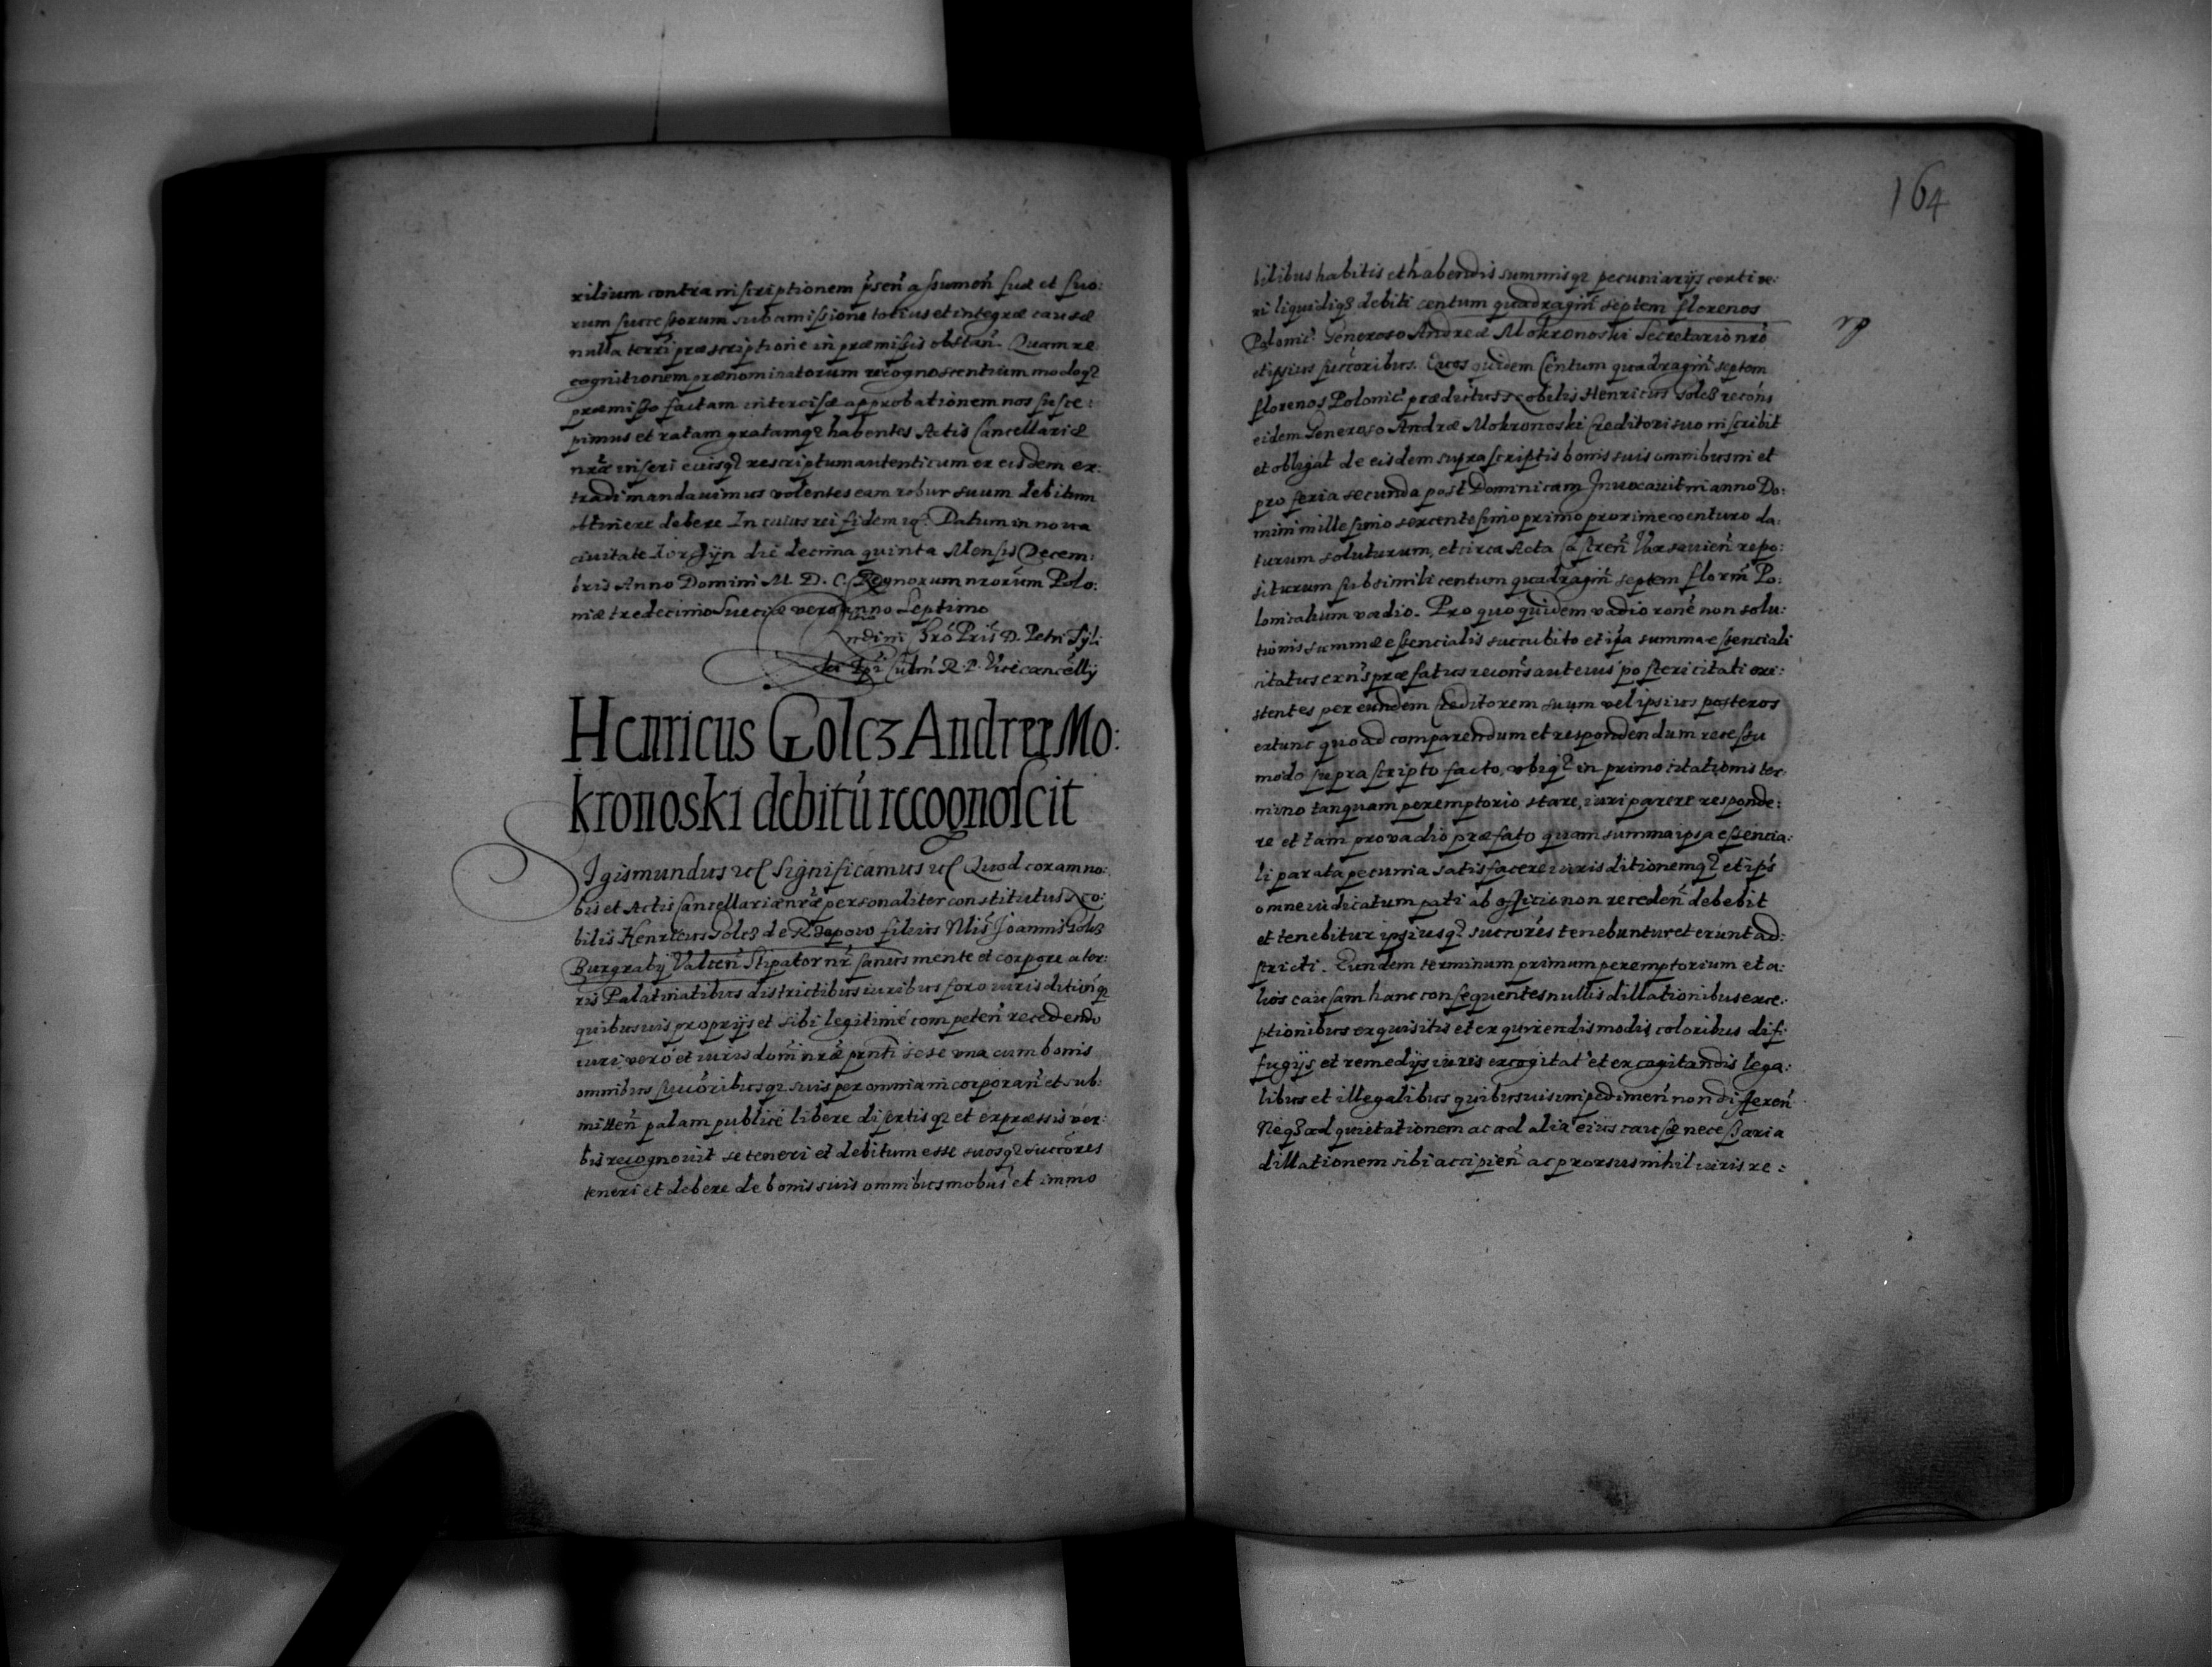 xilium contra inscriptionem p̃sen̄ assumen̄ suæ et suo:
rum successorum sub amissione totius et integræ causæ
nulla terrī præscriptione in præmissis obstan̄. Quam re
cognitionem prænominatorum recognoscentium modoq3
præmisso factam intercisæ approbationem nos susce:
pimus et ratam gratamq3 habentes Actis Cancellariæ
nr̄æ inseri eiusq3 rescriptum autenticum ex eisdem ex:
tradi mandauimus volentes eam robur suum debitum
obtinere debere In cuius rei fidem Datum in noua
ciuitate die decima quinta Mensis Decem:
bris Anno Domini M. D. C. Regnorum nrorūm Polo:
niæ tredecimo Sueciæ vero anno Septimo
D. Petri Tyli:
Culm̄ R. P. Vicecancelly
Henricus Golcz Andreæ Mo:
kronoski debitū recognoscit
Sigismundus Significamus Quod coram no:
bis et Actis Cancellariæ nr̄æ personaliter constitutus No:
bilis Henricus Golcz de filius Nlis̄ Joannis Golcz
Burgrabij Valcen̄ Stipator nr̄ sanus mente et corpore a ter:
ris Palatinatibus districtibus iuribus foro iurisdition̄q3
quibusuis proprijs et sibi legitimé competen̄ recedendo
iuri veró et iuris dom̄ nr̄æ pn̄ti sese una cum bonis
omnibus suc̄oribusq3 suis per omnia incorporan̄ et sub:
mitten̄ palam publicé libere disertisq3 et expræssis ver:
bis recognouit se teneri et debitum esse suosq3 succōres
teneri et debere de bonis suis omnibus mobus̄ et immo
164
bilibus habitis et habendis summisq3 pecuniarijs
ri liquidiq3 debiti centum quadragin̄t septem florenos
Polonic̄ Generoso Andreæ Mokronoski Secretario nrō
et ipsius succ̄oribus. Quos quidem Centum quadragin̄t septem
florenos Polonic̄ prædictus Nobilis Henricus Golcz recon̄s
eidem Generoso Andræ Mokronoski Creditori suo inscribit
et obligat de eisdem suprascriptis bonis suis omnibus in et
pro feria secunda post Dominicam Inuocauit in anno Do:
mini millesimo sexcentesimo primo proxime venturo da:
turum soluturum, et circa Acta Castren̄ Varsauien̄ repo:
siturum sub simili centum quadragin̄ septem florn̄ Po:
lonicalium vadio. Pro quo quidem vadio ronē non solu:
tionis summæ essencialis succubito et ipsa summa essenciali
citatus præfatus recon̄s aut eius posteri citati exi:
stentes per eundem Creditorem suum vel ipsius posteros
extunc quoad comparendum et respondendum recessu
modo suprascripto facto, ubiq3 in primo citationis ter:
mino tanquam peremptorio stare, iuri parere responde:
re et tam pro vadio præfato quam summa ipsa essencia:
li parata pecunia satisfacere iurisditionemq3 et ips̄
omne iudicatum pati ab officio non receden̄ debebit
et tenebitur ipsiusq3 succōrés tenebuntur et erunt ad:
stricti. Eundem terminum primum peremptorium et a:
lios causam hanc consequentes nullis dillationibus exce:
ptionibus exquisitis et exquirendis modis coloribus dif:
fugijs et remedijs iuris excogitat̄ et excogitandis lega:
libus et illegalibus quibusuis impedimen̄ non differen̄
Neq3 ad quietationem ac ad alia eius causæ necessaria
dillationem sibi accipien̄ ac prorsus nihil iuris re: